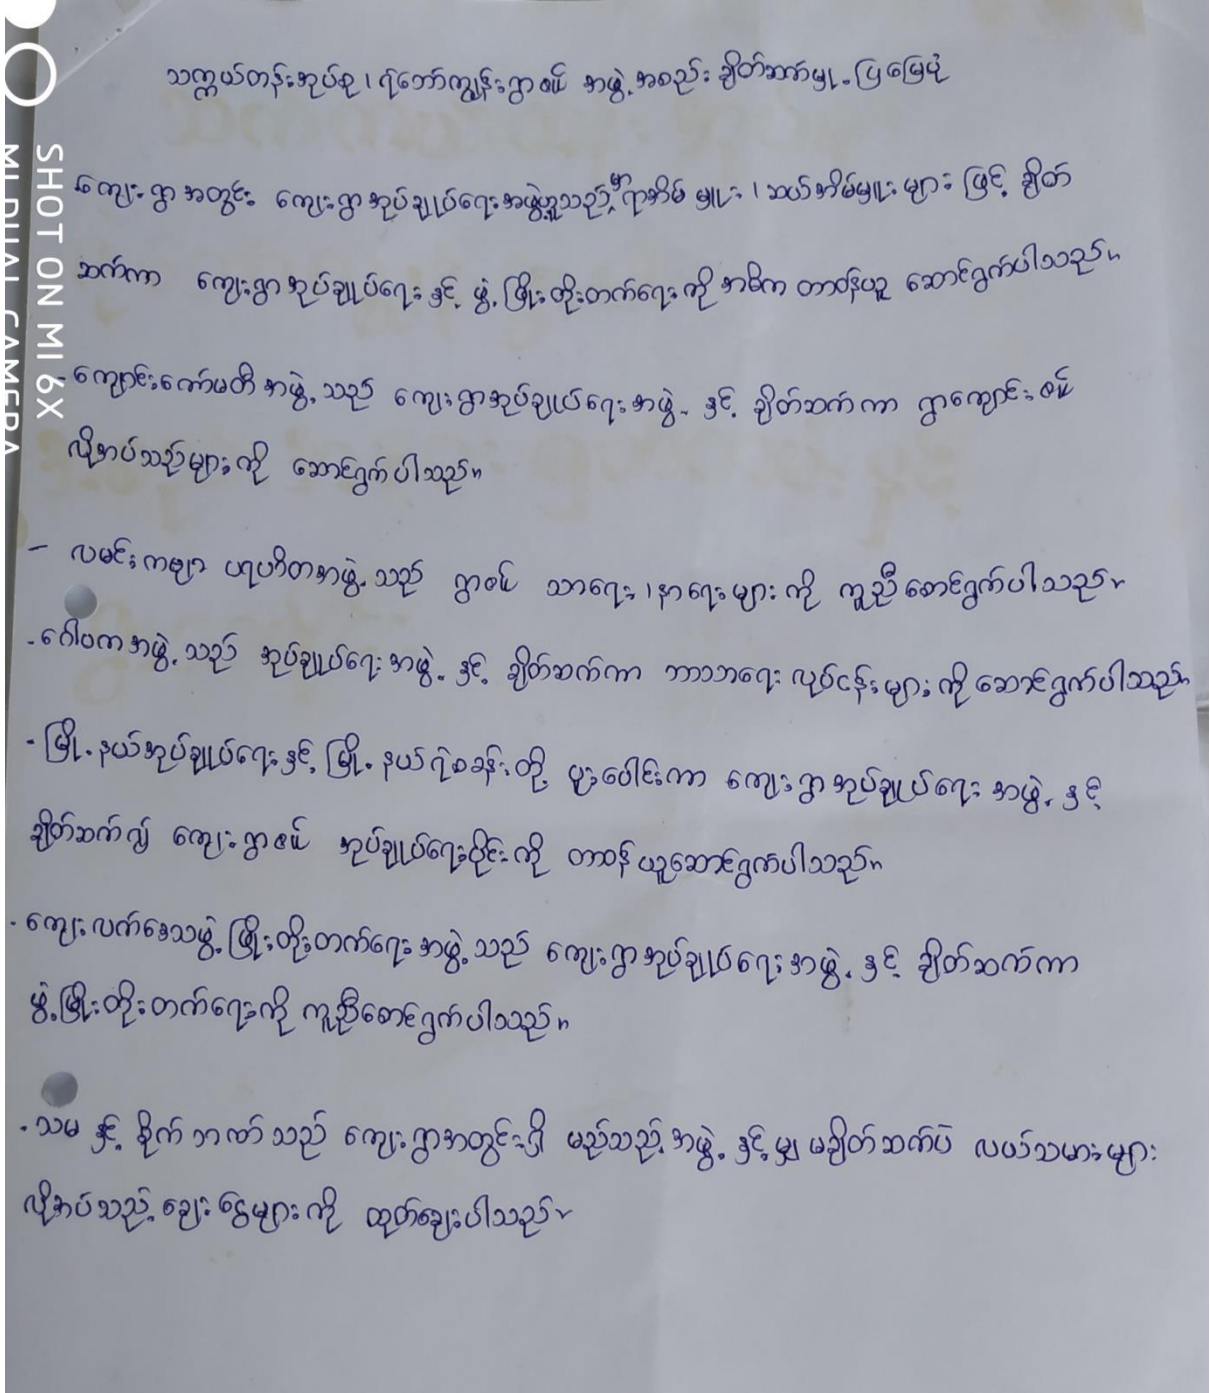 သက္ကယ်တန်းအုပ်စု၊ ရဲဘော်ကျွန်းရွာ၏ အဖွဲ့အစည်း ချိတ်ဆက်မှု့ပြမြေပုံ
ကျေးရွာအတွင်း ကျေးရွာအုပ်ချုပ်ရေးအဖွဲ့ဟူသည် ရာအိမ်မှူး၊ ဆယ်အိမ်မှူးများ ဖြင့် ချိတ်
ဆက်ကာ ကျေးရွာအုပ်ချုပ်ရေးနှင့် ဖွံ့ဖြိုးတိုးတက်ရေးကို အဓိက တာဝန်ယူ ဆောင်ရွက်ပါသည်။
- ကျောင်းကော်မတီအဖွဲ့သည် ကျေးရွာအုပ်ချုပ်ရေးအဖွဲ့နှင့် ချိတ်ဆက်ကာ ရွာကျောင်း၏
လိုအပ်သည်များကို ဆောင်ရွက်ပါသည်။
- လမင်းကမ္ဘာ ပရဟိတအဖွဲ့သည် ရွာ၏ သာရေး၊နာရေးများကို ကူညီဆောင်ရွက်ပါသည်။
- ဂေါပကအဖွဲ့သည် အုပ်ချုပ်ရေးအဖွဲ့နှင့် ချိတ်ဆက်ကာ ဘာသာရေး လုပ်ငန်းများကို ဆောင်ရွက်ပါသည်။
- မြို့နယ်အုပ်ချုပ်ရေးနှင့် မြို့နယ်ရဲစခန်းတို့ ပူးပေါင်းကာ ကျေးရွာအုပ်ချုပ်ရေးအဖွဲ့နှင့်
ချိတ်ဆက်၍ ကျေးရွာ၏ အုပ်ချုပ်ရေးပိုင်းကို တာဝန်ယူဆောင်ရွက်ပါသည်။
- ကျေးလက်ဒေသဖွံ့ဖြိုးတိုးတက်ရေးအဖွဲ့သည် ကျေးရွာအုပ်ချုပ်ရေးအဖွဲ့နှင့် ချိတ်ဆက်ကာ
ဖွံ့ဖြိုးတိုးတက်ရေးကို ကူညီဆောင်ရွက်ပါသည်။
- သမ နှင့် စိုက်ဘဏ်သည် ကျေးရွာအတွင်းရှိ မည်သည့်အဖွဲ့နှင့်မျှ မချိတ်ဆက်ပဲ လယ်သမားများ
လိုအပ်သည့် ချေးငွေများကို ထုတ်ချေးပါသည်။
SHOT ON MI 6X
MI DUAL CAMERA